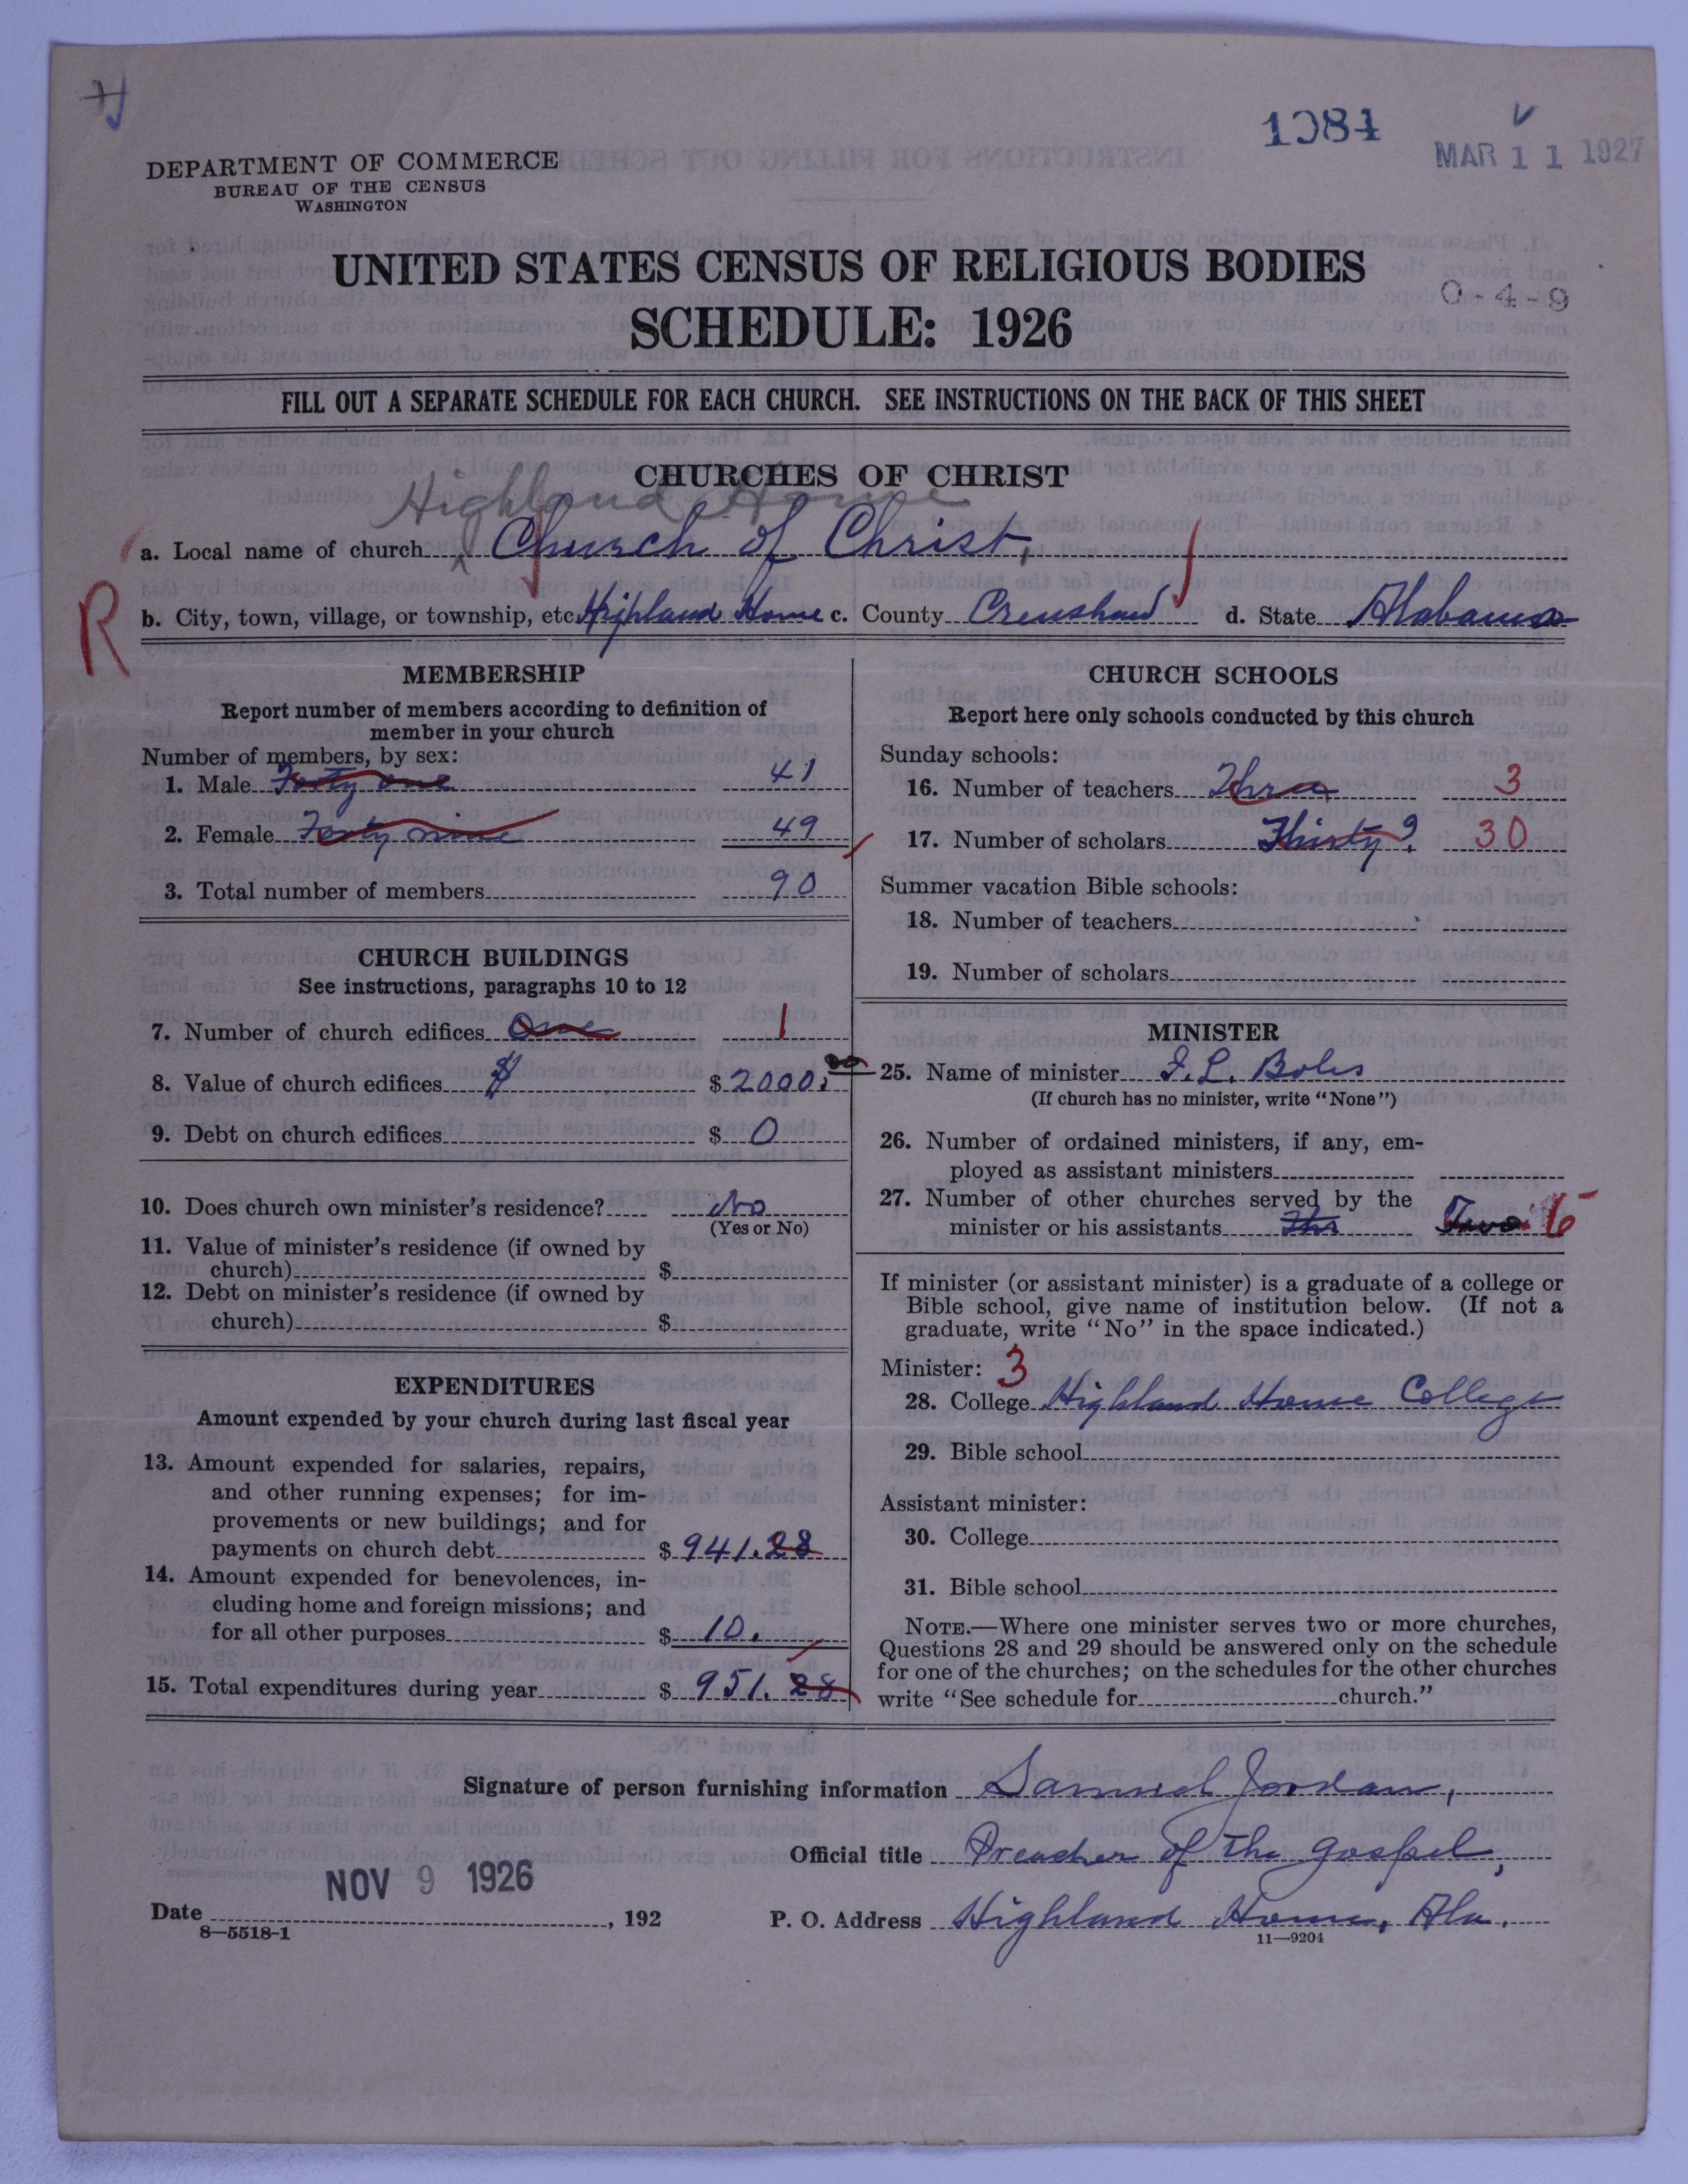 1084
MAR 11 1927
DEPARTMENT OF COMMERCE
BUREAU OF THE CENSUS
WASHINGTON
UNITED STATES CENSUS OF RELIGIOUS BODIES
0-4-9
SCHEDULE: 1926
FILL OUT A SEPARATE SCHEDULE FOR EACH CHURCH. SEE INSTRUCTIONS ON THE BACK OF THIS SHEET
CHURCHES OF CHRIST
Highland Home
a. Local name of church Church of Christ,
R
b. City, town, village, or township, etc. Highland Home c. County Crenshaw d. State Alabama
MEMBERSHIP
Report number of members according to definition of
member in your church
Number of members, by sex:
1. Male Forty one 41
2. Female Forty nine 49
3. Total number of members 90
CHURCH BUILDINGS
See instructions, paragraphs 10 to 12
7. Number of church edifices One 1
8. Value of church edifices $ $2000.00
9. Debt on church edifices $ 0
10. Does church own minister's residence? No
(Yes or No)
11. Value of minister's residence (if owned by
church) $
12. Debt on minister's residence (if owned by
church) $
EXPENDITURES
Amount expended by your church during last fiscal year
13. Amount expended for salaries, repairs,
and other running expenses; for im-
provements or new buildings; and for
payments on church debt $ 941.28
14. Amount expended for benevolences, in-
cluding home and foreign missions; and
for all other purposes $ 10.
15. Total expenditures during year $ 951.28
CHURCH SCHOOLS
Report here only schools conducted by this church
Sunday schools:
16. Number of teachers Three 3
17. Number of scholars Thirty? 30
Summer vacation Bible schools:
18. Number of teachers
19. Number of scholars
MINISTER
25. Name of minister F. L. Boles
(If church has no minister, write "None")
26. Number of ordained ministers, if any, em-
ployed as assistant ministers
27. Number of other churches served by the
minister or his assistants Two
If minister (or assistant minister) is a graduate of a college or
Bible school, give name of institution below. (If not a
graduate, write "No" in the space indicated.)
Minister: 3
28. College Highland Home College
29. Bible school
Assistant minister:
30. College
31. Bible school
NOTE.—Where one minister serves two or more churches,
Questions 28 and 29 should be answered only on the schedule
for one of the churches; on the schedules for the other churches
write "See schedule for church."
Signature of person furnishing information Samuel Jordan,
Official title Preacher of the gospel,
NOV 9 1926
Date , 192
P. O. Address Highland Home, Ala.
8—5518-1
11—9204